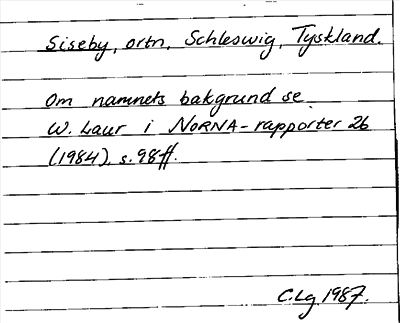 Siseby, ortn, Schleswig, Tyskland.
Om namnets bakgrund se
W. Laur i NORNA-rapporter 26
(1984), s. 98ff.
C.Lg 1987.